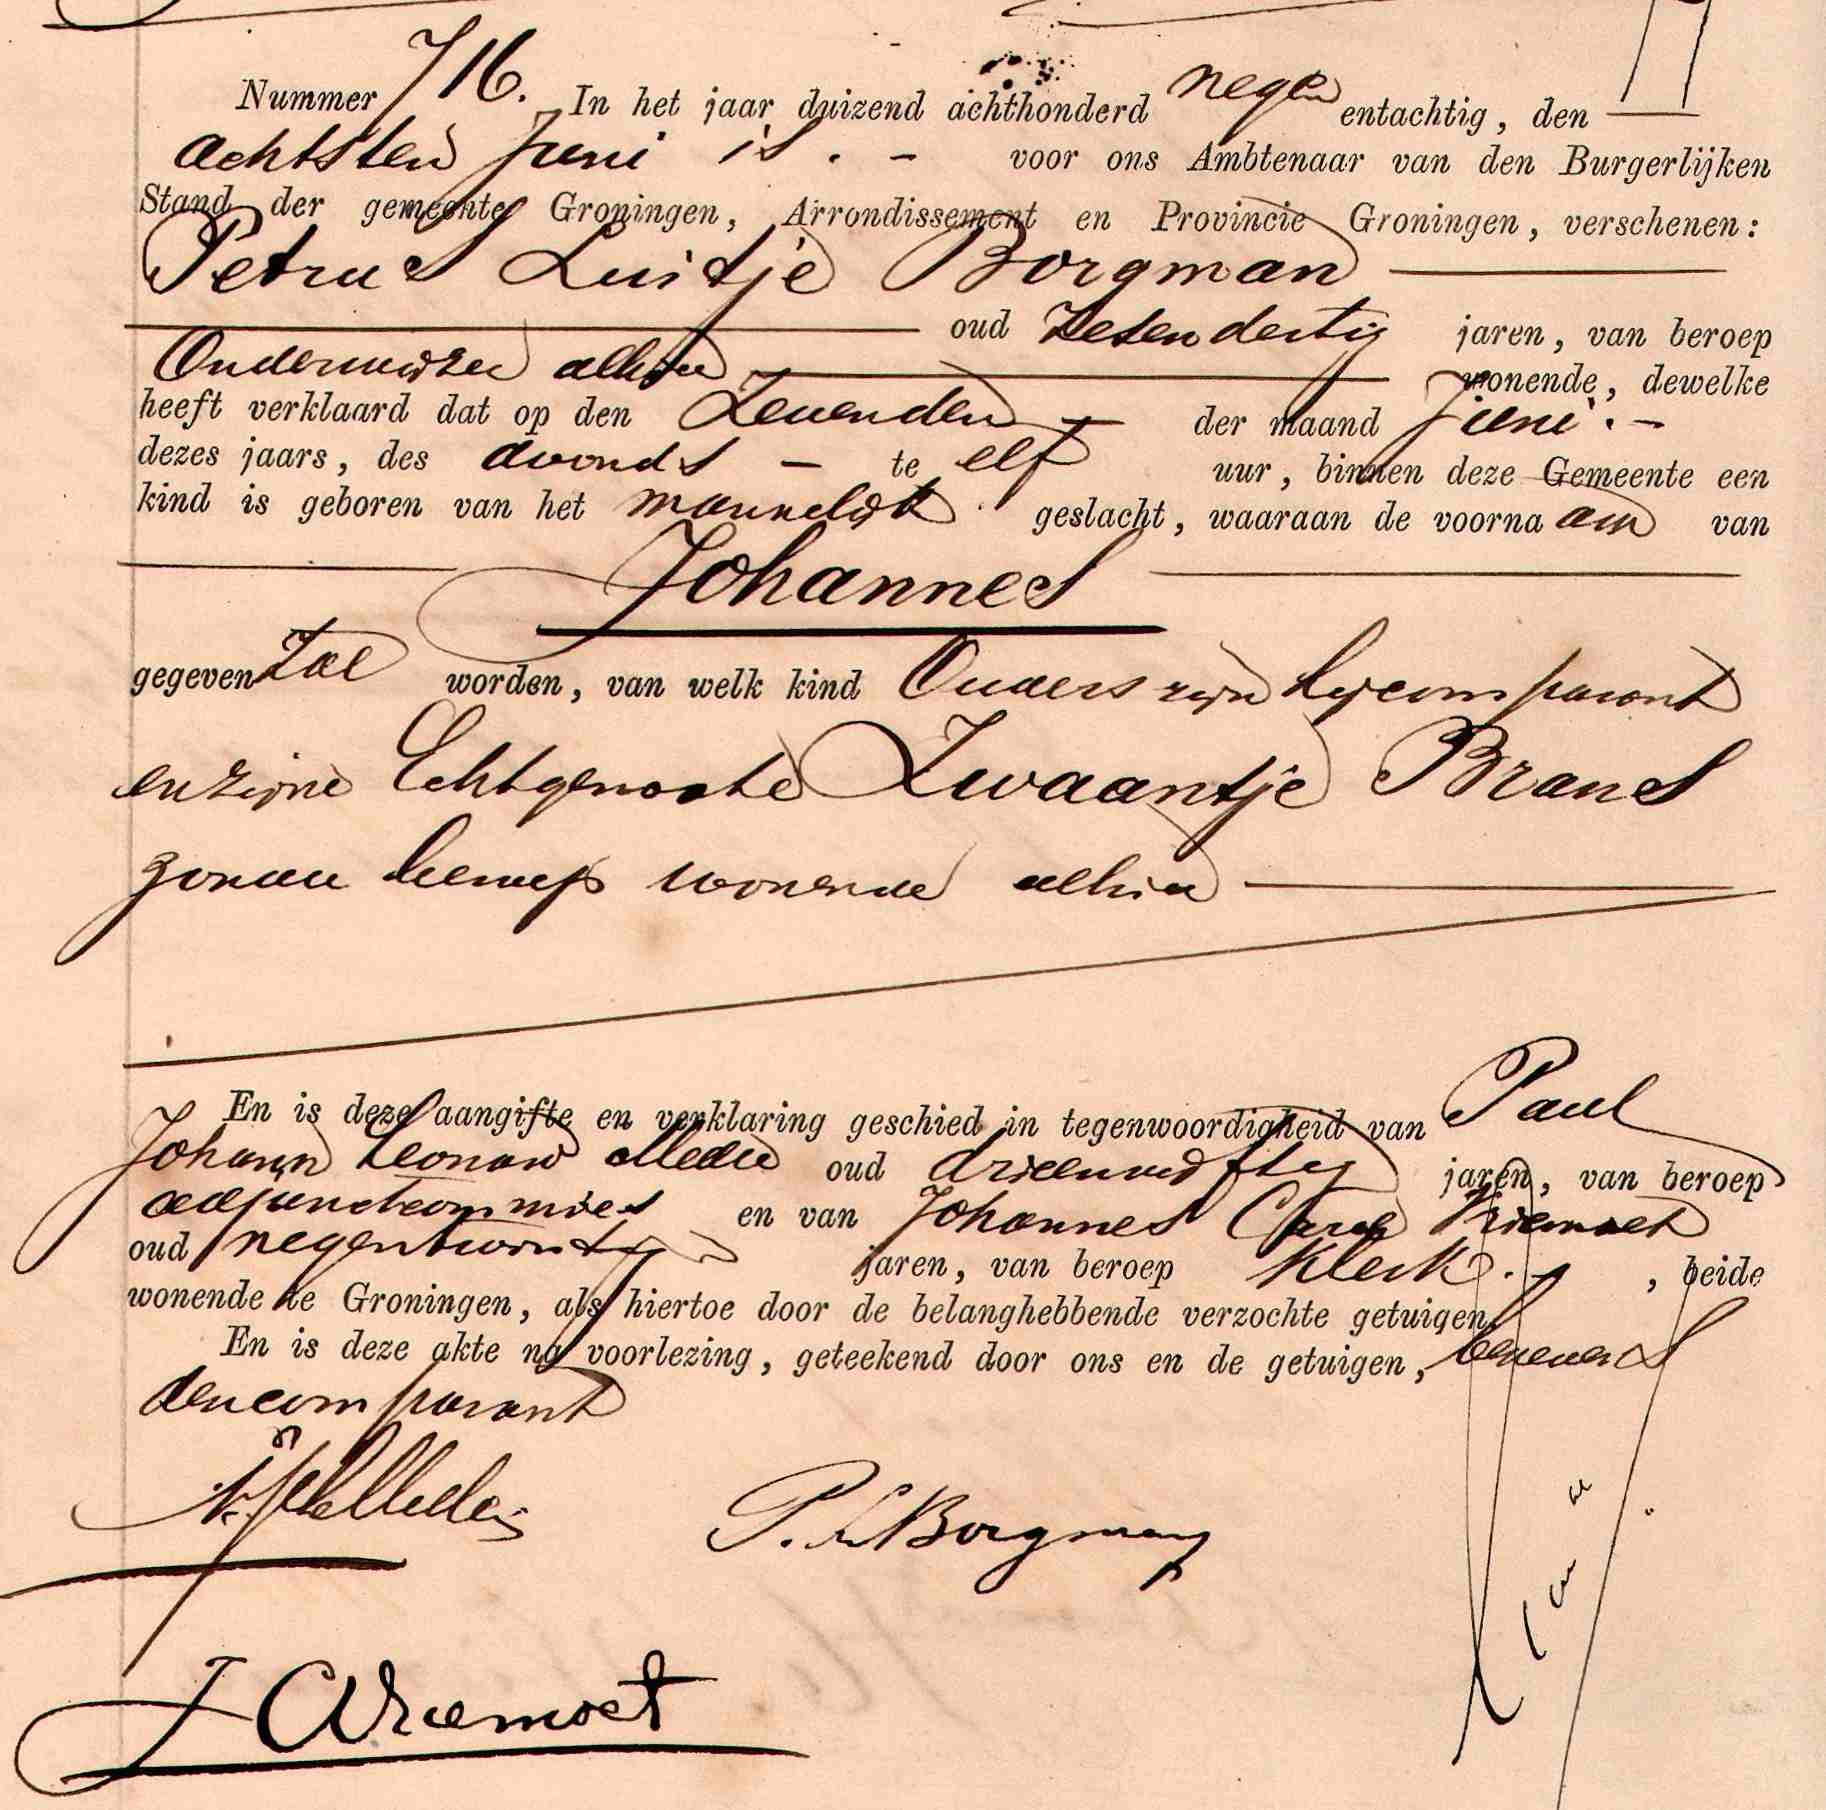 Nummer 716. In het jaar duizend achthonderd negen entachtig, den
achtsten Juni is. – voor ons Ambtenaar van den Burgerlijken
Stand der gemeente Groningen, Arrondissement en Provincie Groningen, verschenen:
Petrus Luitje Borgman
oud zesendertig jaren, van beroep
Onderwijzer alhier wonende, dewelke
heeft verklaard dat op den Zevenden – der maand Juni. –
dezes jaars, des avonds – te elf uur, binnen deze Gemeente een
kind is geboren van het mannelijk geslacht, waaraan de voorna am van
Johannes
gegeven zal worden, van welk kind Ouders zijn hij comparant
en zijne Echtgenoote Zwaantje Brans
zonder beroep wonende alhier
En is deze aangifte en verklaring geschied in tegenwoordigheid van Paul
Johann Leonard oud drieenvijftig jaren, van beroep
adjunctcommies en van Johannes Carel Kriemoet
oud negentwintig jaren, van beroep klerk. – , beide
wonende te Groningen, als hiertoe door de belanghebbende verzochte getuigen.
En is deze akte na voorlezing, geteekend door ons en de getuigen, benevens
den comparant
P. L. Borgman